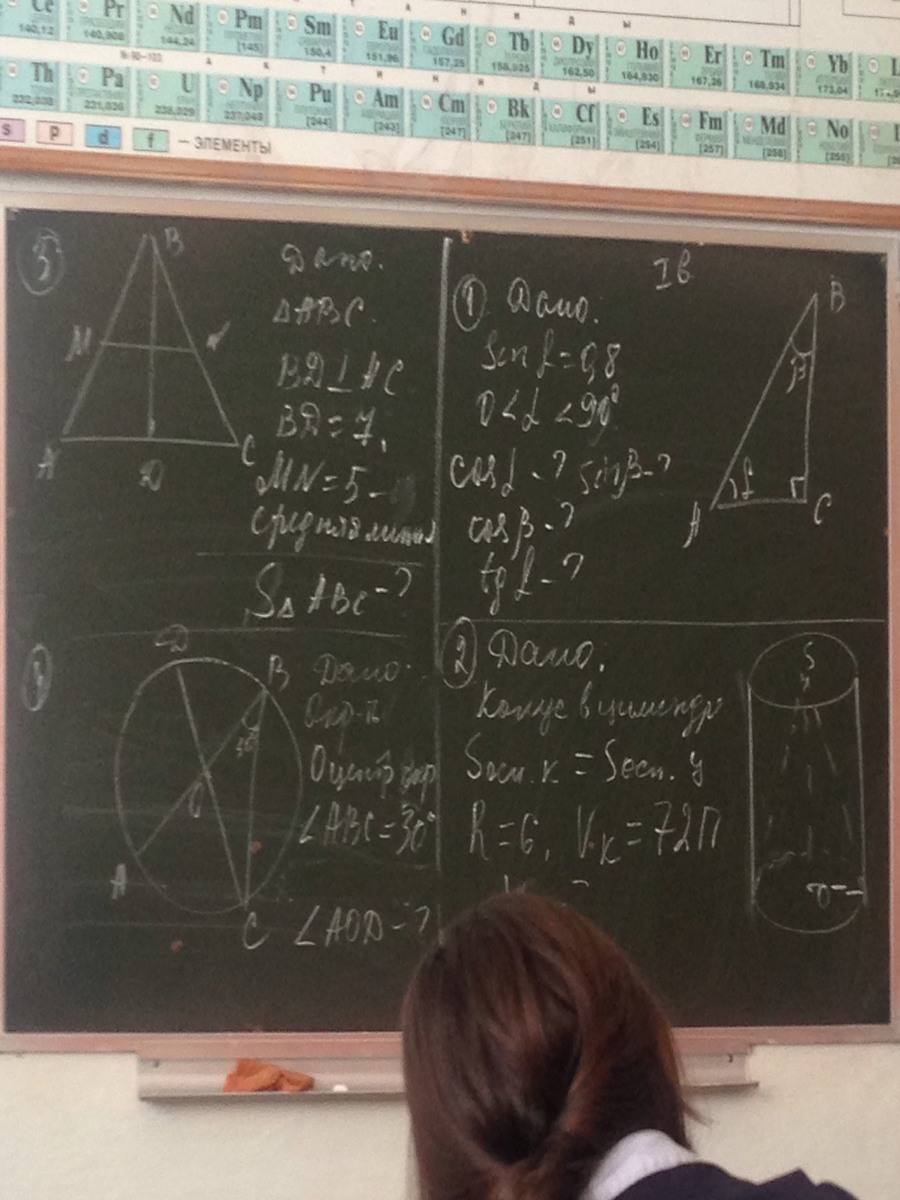 Ce Pr Nd Pm Sm Eu Gd Tb Dy Ho Er Tm Yb
140,12 140,908 144,24 [145] 150,4 151,96 157,25 158,925 162,50 164,930 167,26 168,934 173,04
А К Т И Н И Д Ы
Th Pa U Np Pu Am Cm Bk Cf Es Fm Md No
232,038 231,036 238,029 237,048 [244] [243] [247] [247] [251] [254] [257] [258] [255]
s p d f — ЭЛЕМЕНТЫ
3
B
M N
A D C
Дано.
ΔABC.
BD⊥AC
BD=7,
MN=5-
средняя линия
SΔABC-?
D
B
30°
O
A
C
Дано:
Окр-ть
O центр окр
∠ABC=30°
∠AOD-?
Iв
1 Дано:
Sin α=0,8
0<α<90°
cosα-? sinβ-?
cosβ-?
tgα-?
B
β
α
A C
2 Дано:
Конус в цилиндре
Sосн.к = Sосн.ц
R=6, Vк=72П
S